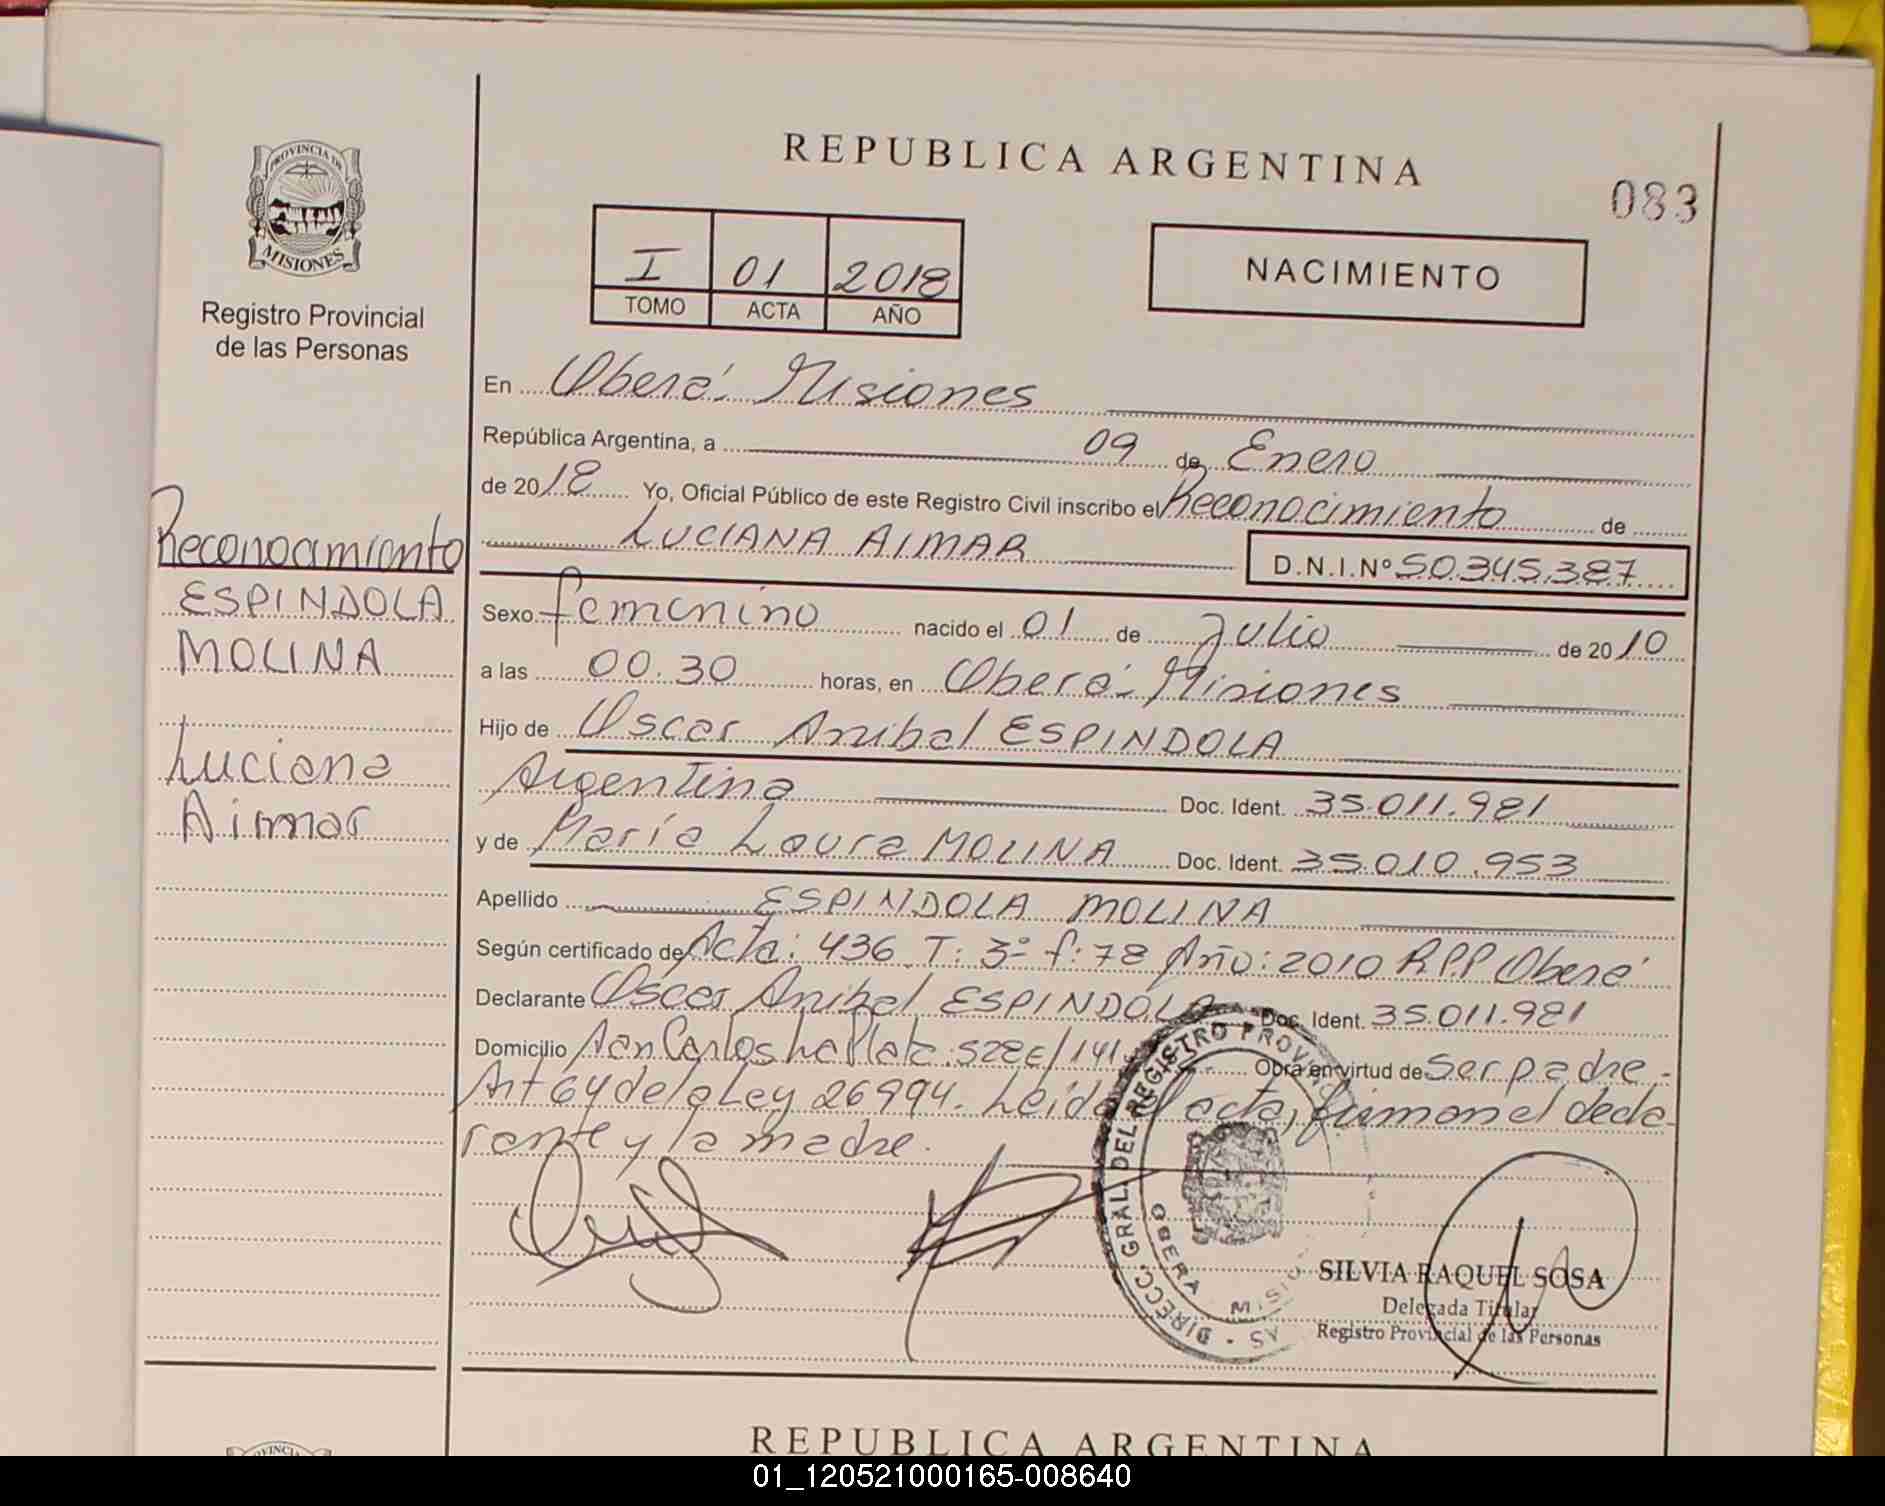 REPUBLICA ARGENTINA
083
PROVINCIA DE
MISIONES
Registro Provincial
de las Personas
I 01 2018
TOMO ACTA AÑO
NACIMIENTO
En Oberá Misiones
República Argentina, a 09 de Enero
de 2018 Yo, Oficial Público de este Registro Civil inscribo el Reconocimiento de
LUCIANA AIMAR D.N.I.Nº 50.345.387
Sexo femenino nacido el 01 de Julio de 2010
a las 00.30 horas, en Oberá - Misiones
Hijo de Oscar Anibal ESPINDOLA
Argentina Doc. Ident. 35.011.981
y de María Laura MOLINA Doc. Ident. 35.010.953
Apellido ESPINDOLA MOLINA
Según certificado de Acta: 436 T: 3º f: 78 Año: 2010 R.P.P Oberá
Declarante Oscar Anibal ESPINDOLA Doc. Ident. 35.011.981
Domicilio San Carlos La Plata Obra en virtud de Ser padre.-
Art 64 de la Ley 26994. Leida el acta, firman el decla-
rante y la madre.
Reconocimiento
ESPINDOLA
MOLINA
Luciana
Aimar
DIRECC. GRAL. DEL REGISTRO PROVINCIAL
OBERA MISIONES
SILVIA RAQUEL SOSA
Delegada Titular
Registro Provincial de las Personas
REPUBLICA ARGENTINA
01_120521000165-008640